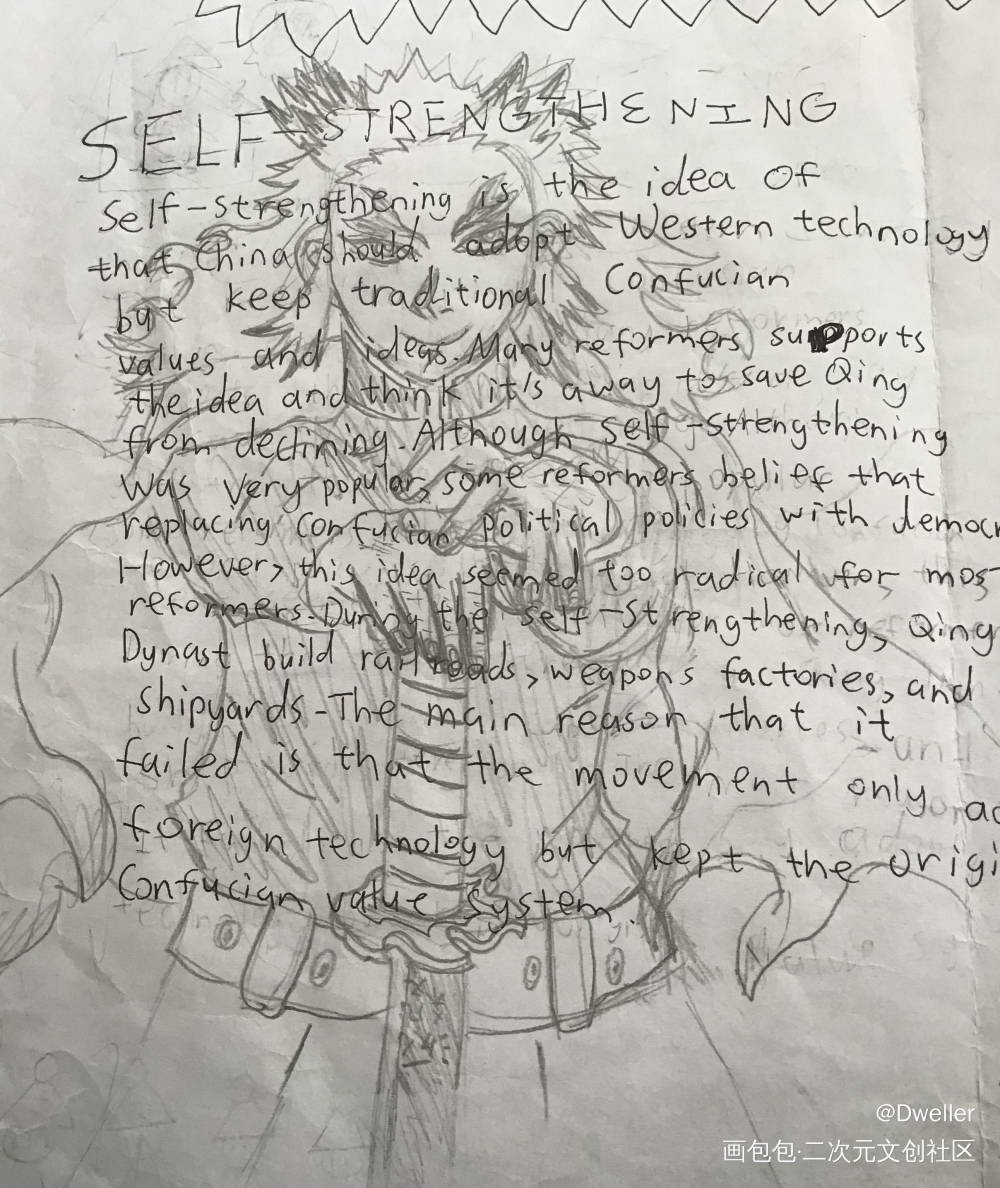 SELF-STRENGTHENING
Self-strengthening is the idea of
that China should adopt Western technology
but keep traditional Confucian
values and ideas. Many reformers supports
the idea and think it's away to save Qing
from declining. Although Self-strengthening
was very popular, some reformers belief that
replacing Confucian political policies with democr
However, this idea seemed too radical for mos
reformers. During the self-strengthening, Qing
Dynast build railroads, weapons factories, and
shipyards. The main reason that it
failed is that the movement only ad
foreign technology but kept the origi
Confucian value system.
@Dweller
画包包·二次元文创社区